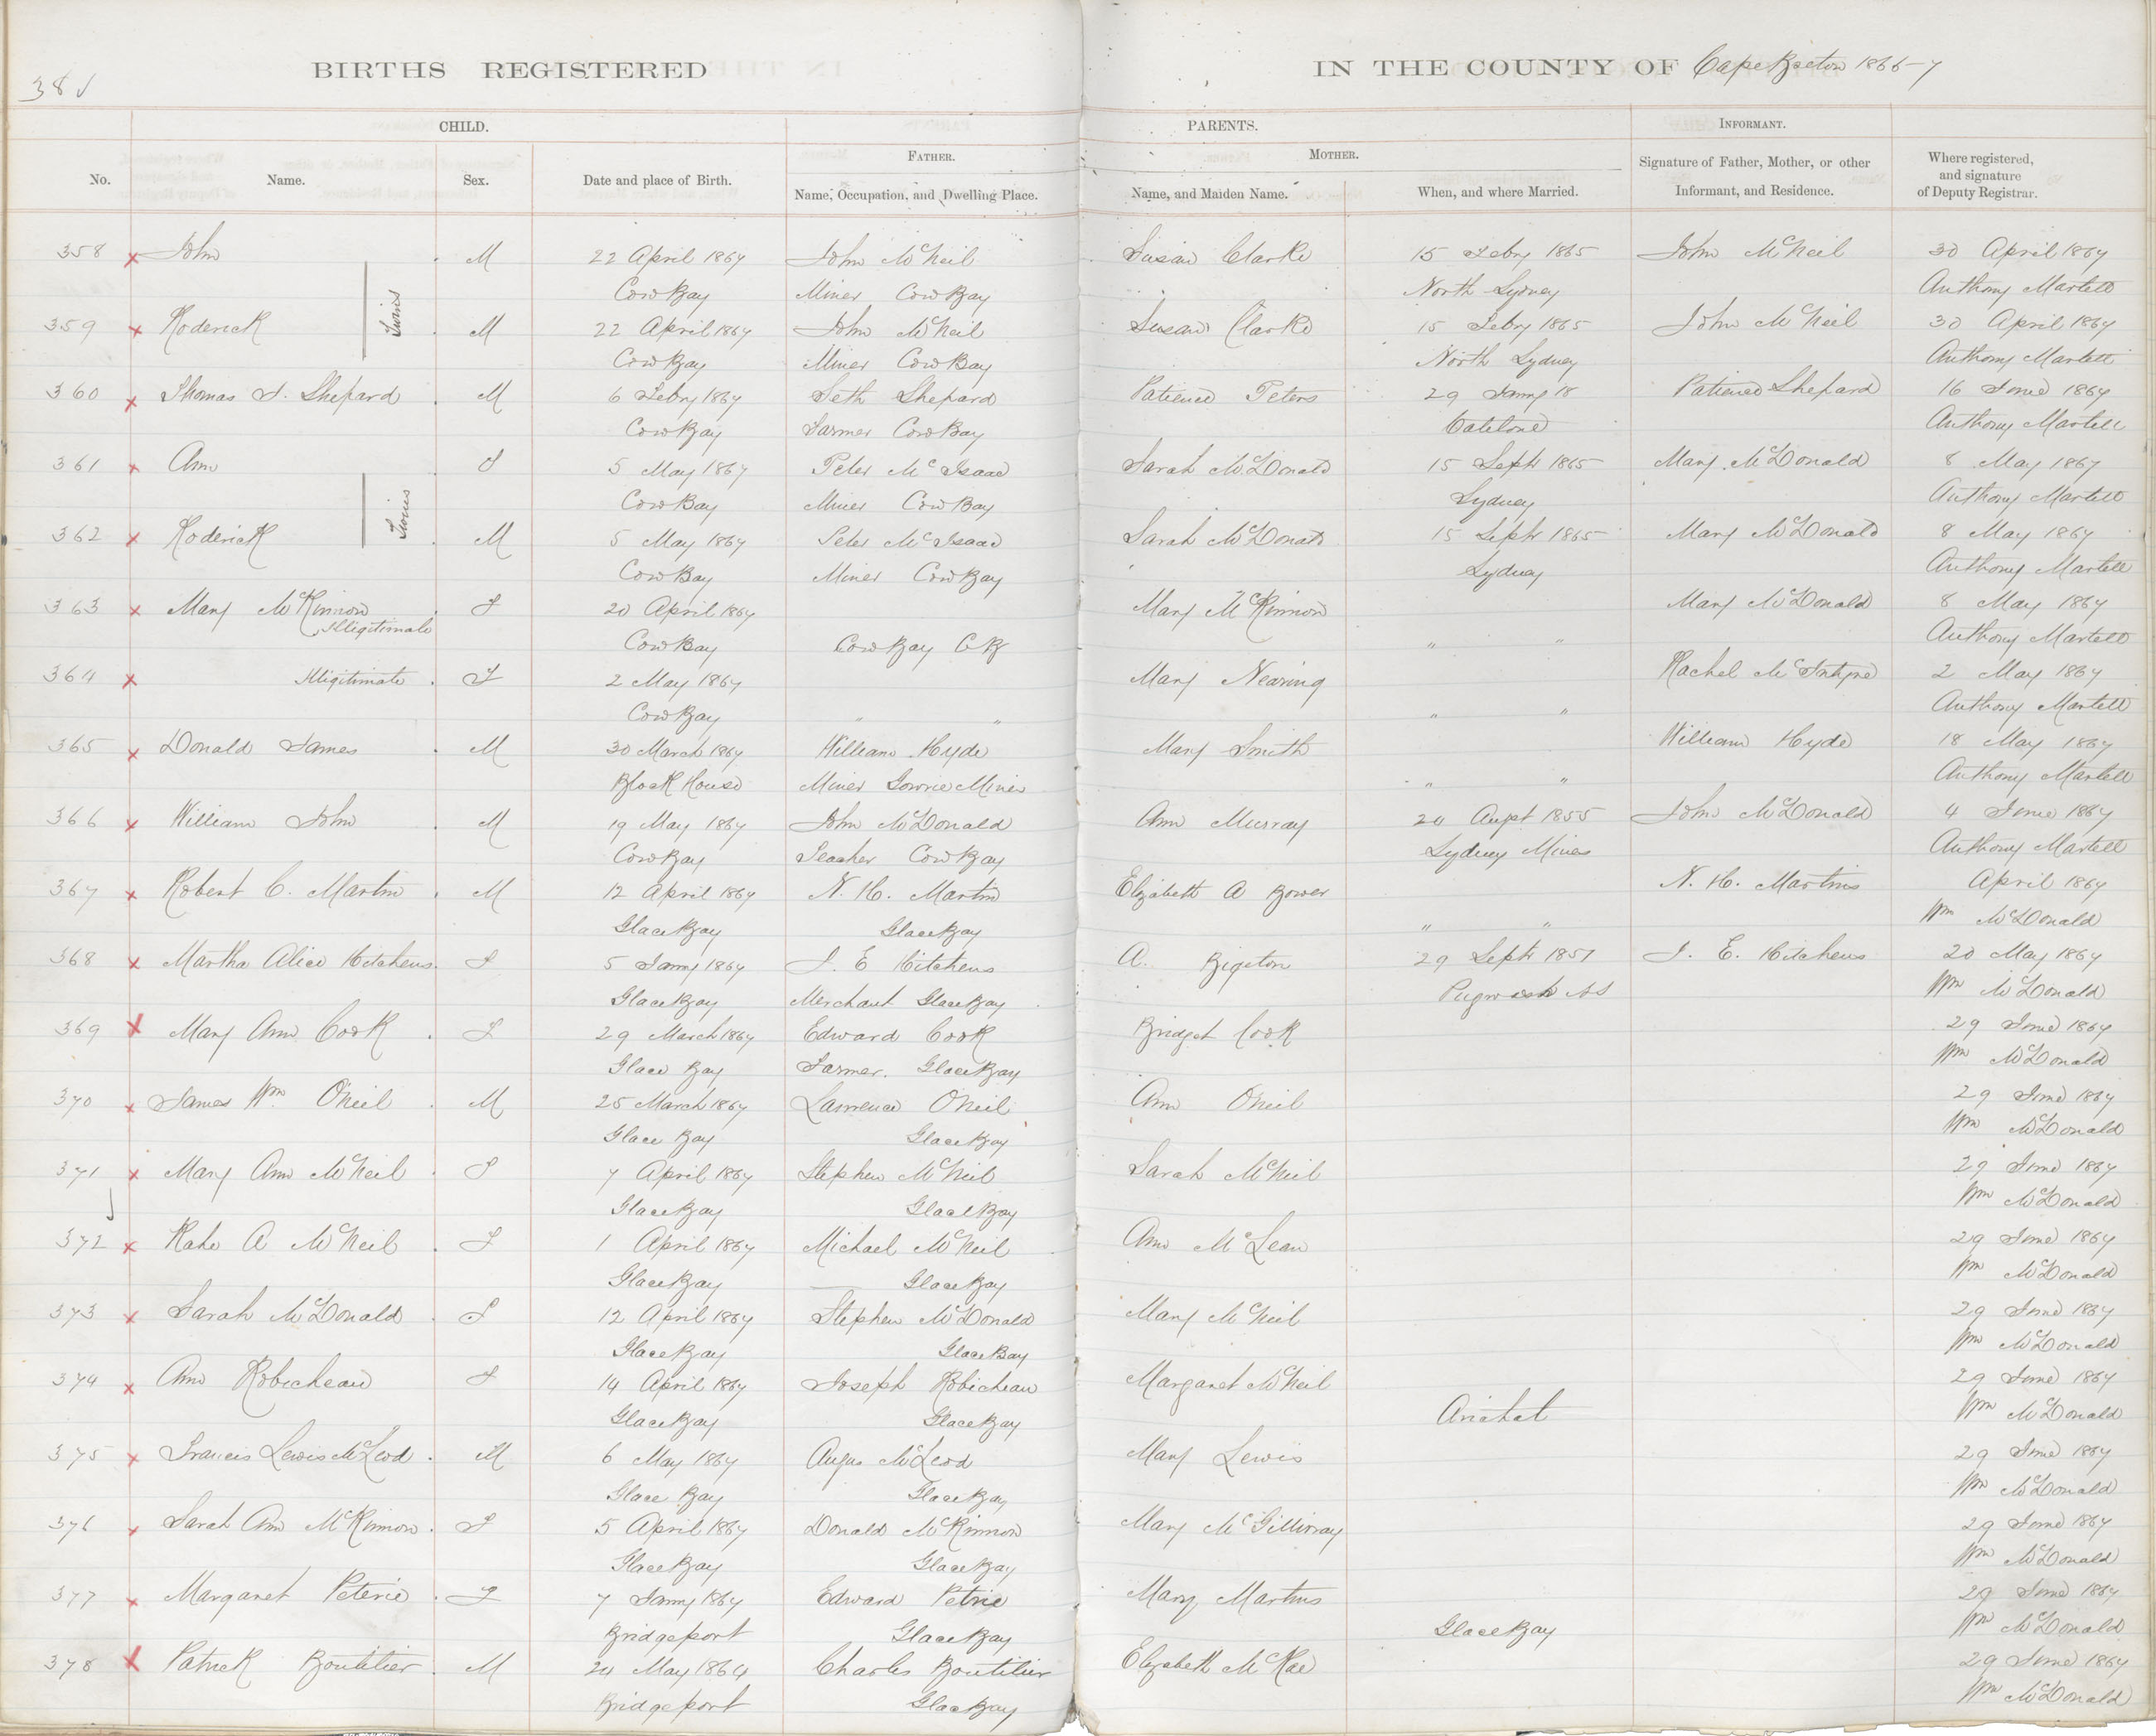 38
BIRTHS REGISTERED IN THE COUNTY OF Cape Breton 1866-7
CHILD. PARENTS. INFORMANT.
FATHER. MOTHER.
No. Name. Sex. Date and place of Birth. Name, Occupation, and Dwelling Place. Name, and Maiden Name. When, and where Married. Signature of Father, Mother, or other Informant, and Residence. Where registered, and signature of Deputy Registrar.
358 x John M 22 April 1867 John McNeil Susan Clarke 15 Febry 1865 John McNeil 30 April 1867
Cow Bay Miner Cow Bay North Sydney Anthony Martell
Twins
359 x Roderick M 22 April 1867 John McNeil Susan Clarke 15 Febry 1865 John McNeil 30 April 1867
Cow Bay Miner Cow Bay North Sydney Anthony Martell
360 x Thomas J. Shepard M 6 Febry 1867 Seth Shepard Patience Peters 29 Janry 18 Patience Shepard 16 June 1867
Cow Bay Farmer Cow Bay Catelone Anthony Martell
361 x Ann F 5 May 1867 Peter McIsaac Sarah McDonald 15 Septr 1865 Mary McDonald 8 May 1867
Cow Bay Miner Cow Bay Sydney Anthony Martell
Twins
362 x Roderick M 5 May 1867 Peter McIsaac Sarah McDonald 15 Septr 1865 Mary McDonald 8 May 1867
Cow Bay Miner Cow Bay Sydney Anthony Martell
363 x Mary McKinnon F 20 April 1867 Mary McKinnon Mary McDonald 8 May 1867
Illigitimate Cow Bay Cow Bay CB " " Anthony Martell
364 x Illigitimate F 2 May 1867 Mary Nearing Rachel McIntyre 2 May 1867
Cow Bay " " " " Anthony Martell
365 x Donald James M 30 March 1867 William Hyde Mary Smith William Hyde 18 May 1867
Block House Miner Gowrie Mines " " Anthony Martell
366 x William John M 19 May 1867 John McDonald Ann Murray 20 Augst 1855 John McDonald 4 June 1867
Cow Bay Teacher Cow Bay Sydney Mines Anthony Martell
367 x Robert C. Martin M 12 April 1867 N. H. Martin Elizabeth A Bower N. H. Martins April 1867
Glace Bay Glace Bay " " Wm McDonald
368 x Martha Alice Hitchens F 5 Janry 1867 J. E Hitchens A. Bigeton 29 Septr 1857 J. E. Hitchens 20 May 1867
Glace Bay Merchant Glace Bay Pugwash NS Wm McDonald
369 x Mary Ann Cook F 29 March 1867 Edward Cook Bridget Cook 29 June 1867
Glace Bay Farmer. Glace Bay Wm McDonald
370 x James Wm O'Neil M 25 March 1867 Lawrence O'Neil Ann O'Neil 29 June 1867
Glace Bay Glace Bay Wm McDonald
371 x Mary Ann McNeil F 7 April 1867 Stephen McNeil Sarah McNeil 29 June 1867
Glace Bay Glace Bay Wm McDonald
372 x Kate A McNeil F 1 April 1867 Michael McNeil Ann McLean 29 June 1867
Glace Bay Glace Bay Wm McDonald
373 x Sarah McDonald F 12 April 1867 Stephen McDonald Mary McNeil 29 June 1867
Glace Bay Glace Bay Wm McDonald
374 x Ann Robicheau F 14 April 1867 Joseph Robicheau Margaret McNeil 29 June 1867
Glace Bay Glace Bay Arichat Wm McDonald
375 x Francis Lewis McLeod M 6 May 1867 Angus McLeod Mary Lewis 29 June 1867
Glace Bay Glace Bay Wm McDonald
376 x Sarah Ann McKinnon F 5 April 1867 Donald McKinnon Mary McGillivray 29 June 1867
Glace Bay Glace Bay Wm McDonald
377 x Margaret Peterie F 7 Janry 1867 Edward Petrie Mary Martins 29 June 1867
Bridgeport Glace Bay Glace Bay Wm McDonald
378 x Patrick Boutilier M 24 May 1864 Charles Boutilier Elizabeth McRae 29 June 1867
Bridgeport Glace Bay Wm McDonald